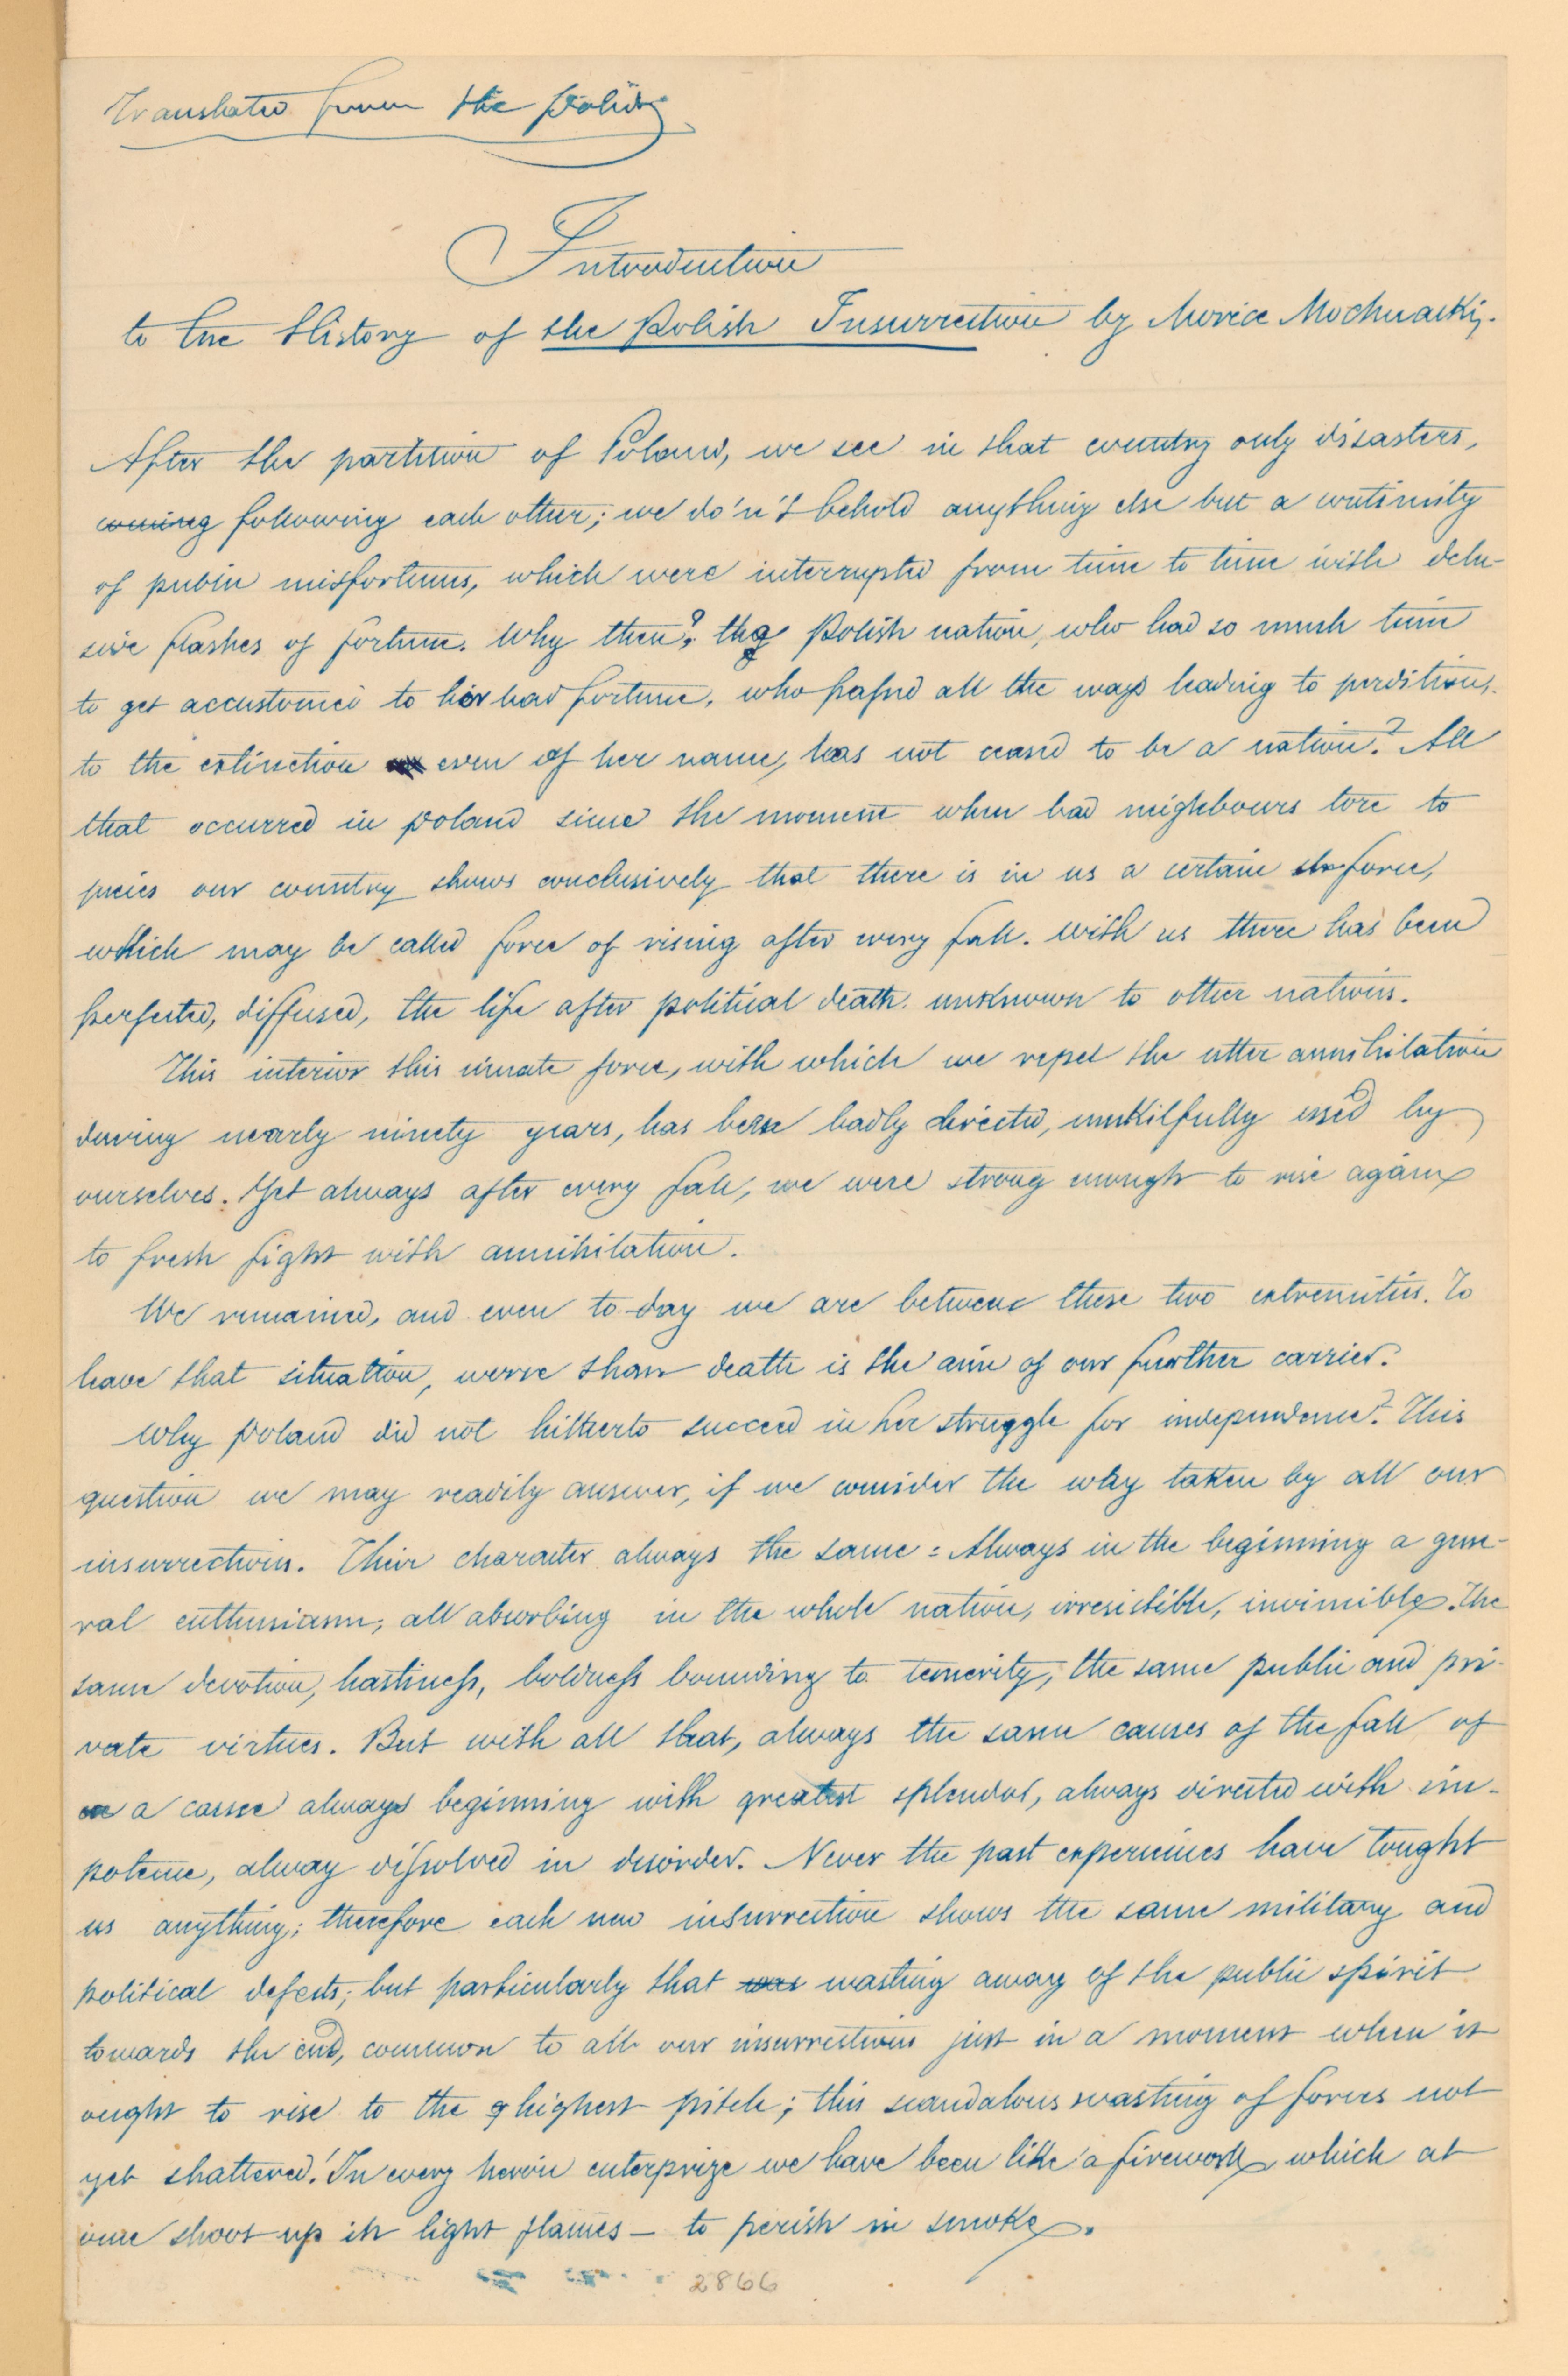 Translated from the Polish
Introduction
to the History of the Polish Insurrection by Morice Mochnacki.
After the partition of Poland, we see in that country only disasters,
coming following each other; we do'n't behold anything else but a continuity
of public misfortunes, which were interrupted from time to time with delu-
sive flashes of fortune. Why then? the Polish nation, who had so much time
to get accustomed to her bad fortune, who passed all the ways leading to perdition,
to the extinction even of her name, has not ceased to be a nation? All
that occurred in Poland since the moment when bad neighbours tore to
pieces our country shows conclusively that there is in us a certain force,
which may be called force of rising after every fall. With us there has been
perfected, diffused, the life after political death unknown to other nations.
This interior this innate force, with which we repel the utter annihilation
during nearly ninety years, has been badly directed, unskilfully used by
ourselves. Yet always after every fall, we were strong enough to rise again
to fresh fight with annihilation.
We remained, and even to-day we are between these two extremities. To
leave that situation, worse than death is the aim of our further carrier.
Why Poland did not hitherto succeed in her struggle for independence? This
question we may readily answer, if we consider the way taken by all our
insurrections. Their character always the same: Always in the beginning a gene-
ral enthusiasm, all absorbing in the whole nation, irresistible, invincible. The
same devotion, hastiness, boldness bounding to temerity, the same public and pri-
vate virtues. But with all that, always the same causes of the fall of
a cause always beginning with greatest splendor, always directed with im-
potence, alway dissolved in disorder. Never the past experiences have tought
us anything; therefore each new insurrection shows the same military and
political defects; but particularly that was wasting away of the public spirit
towards the end, common to all our insurrections just in a moment when it
ought to rise to the highest pitch; this scandalous wasting of forces not
yet shattered! In every heroic enterprize we have been like a firework which at
once shoot up in light flames — to perish in smoke.
2866